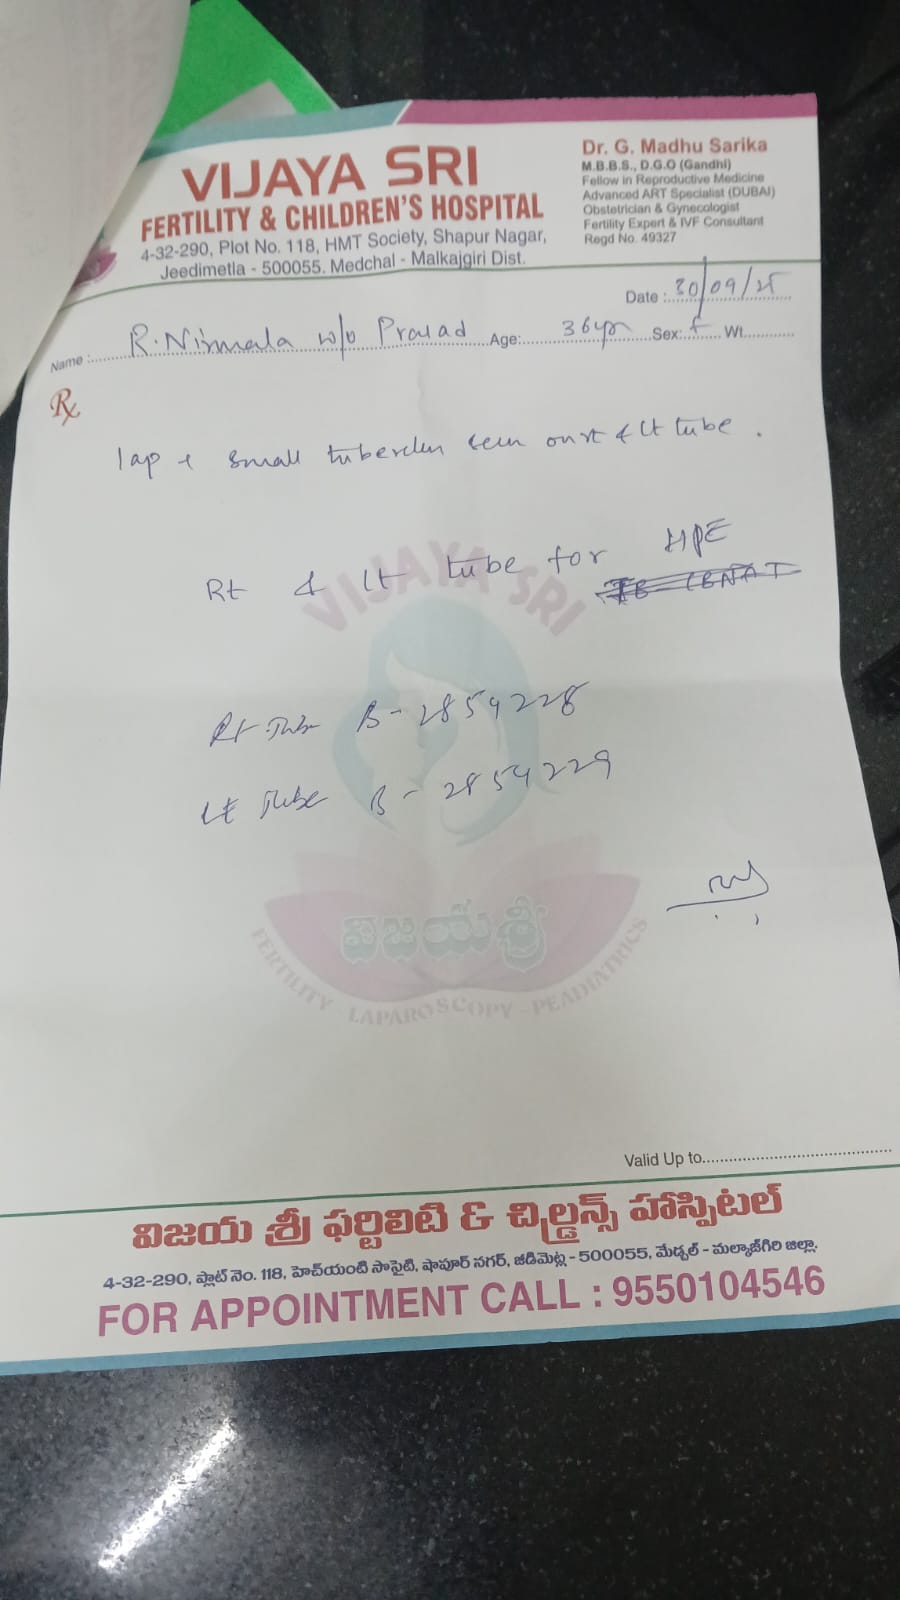 VIJAYA SRI
FERTILITY & CHILDREN'S HOSPITAL
4-32-290, Plot No. 118, HMT Society, Shapur Nagar,
Jeedimetla - 500055. Medchal - Malkajgiri Dist.
Dr. G. Madhu Sarika
M.B.B.S., D.G.O (Gandhi)
Fellow in Reproductive Medicine
Advanced ART Specialist (DUBAI)
Obstetrician & Gynecologist
Fertility Expert & IVF Consultant
Regd No. 49327
Date : 30/09/25
Name : R. Nirmala w/o Prasad Age: 36yrs Sex: f Wt
Rx
lap small seen on rt & lt tube .
Rt & lt tube for HPE
TB CBNAT
Rt Tube B - 2854228
Lt Tube B - 2854229
VIJAYA SRI
విజయశ్రీ
FERTILITY - LAPAROSCOPY - PEADIATRICS
Valid Up to
విజయ శ్రీ ఫర్టిలిటి & చిల్డ్రన్స్ హాస్పిటల్
4-32-290, ప్లాట్ నెం. 118, హెచ్‌యంటి సొసైటి, షాపూర్ నగర్, జీడిమెట్ల - 500055, మేడ్చల్ - మల్కాజ్‌గిరి జిల్లా.
FOR APPOINTMENT CALL : 9550104546